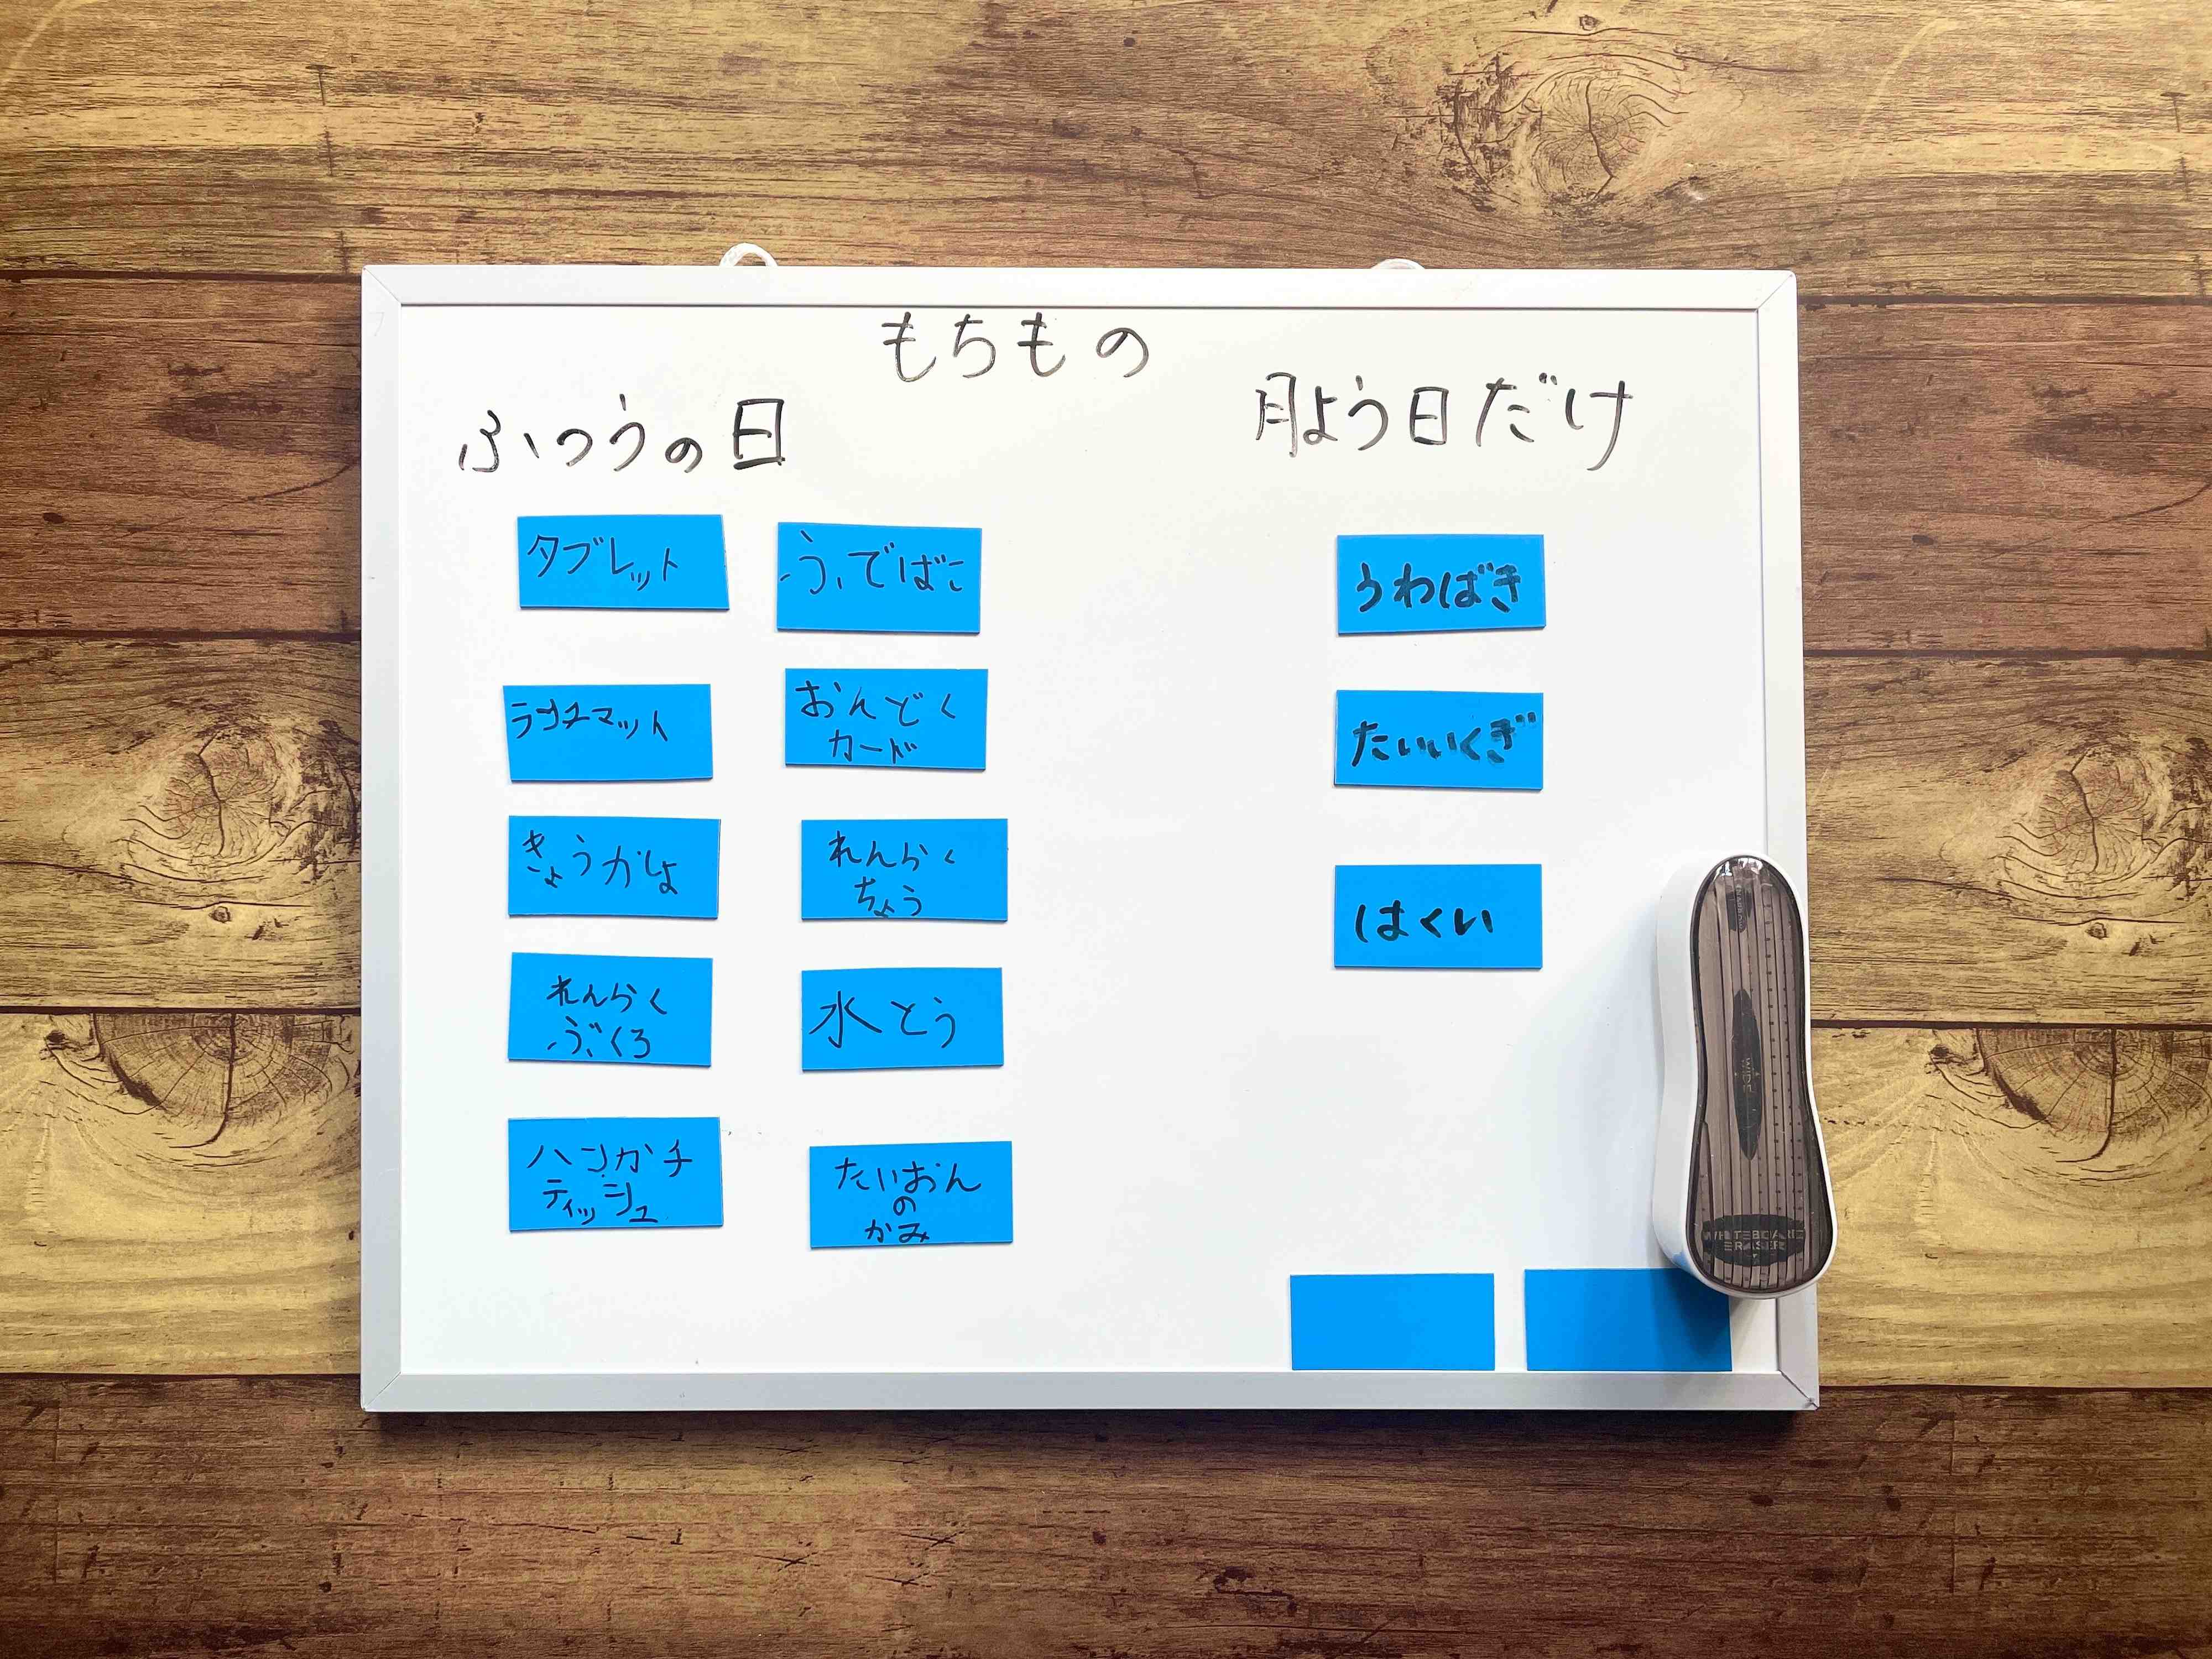 もちもの
ふつうの日
月よう日だけ
タブレット
ふでばこ
うわばき
ランチマット
おんどく
カード
たいいくぎ
きょうかしょ
れんらく
ちょう
はくい
れんらく
ぶくろ
水とう
ハンカチ
ティッシュ
たいおん
の
かみ
WIDE
WHITEBOARD
ERASER